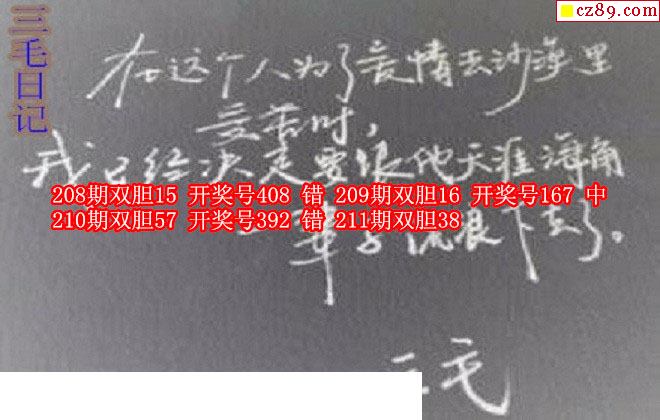 cz89.com
三毛日记
在这个人为了爱情去沙漠里
受苦时,
我已经决定要跟他天涯海角
208期双胆15 开奖号408 错 209期双胆16 开奖号167 中
210期双胆57 开奖号392 错 211期双胆38
一辈子流浪下去了。
三毛